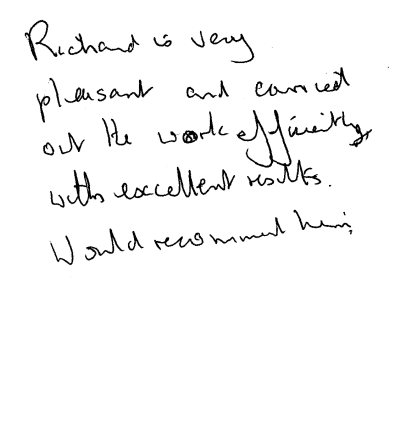 Richard is very
pleasant and carried
out the work efficiently,
with excellent results.
Would recommend him.